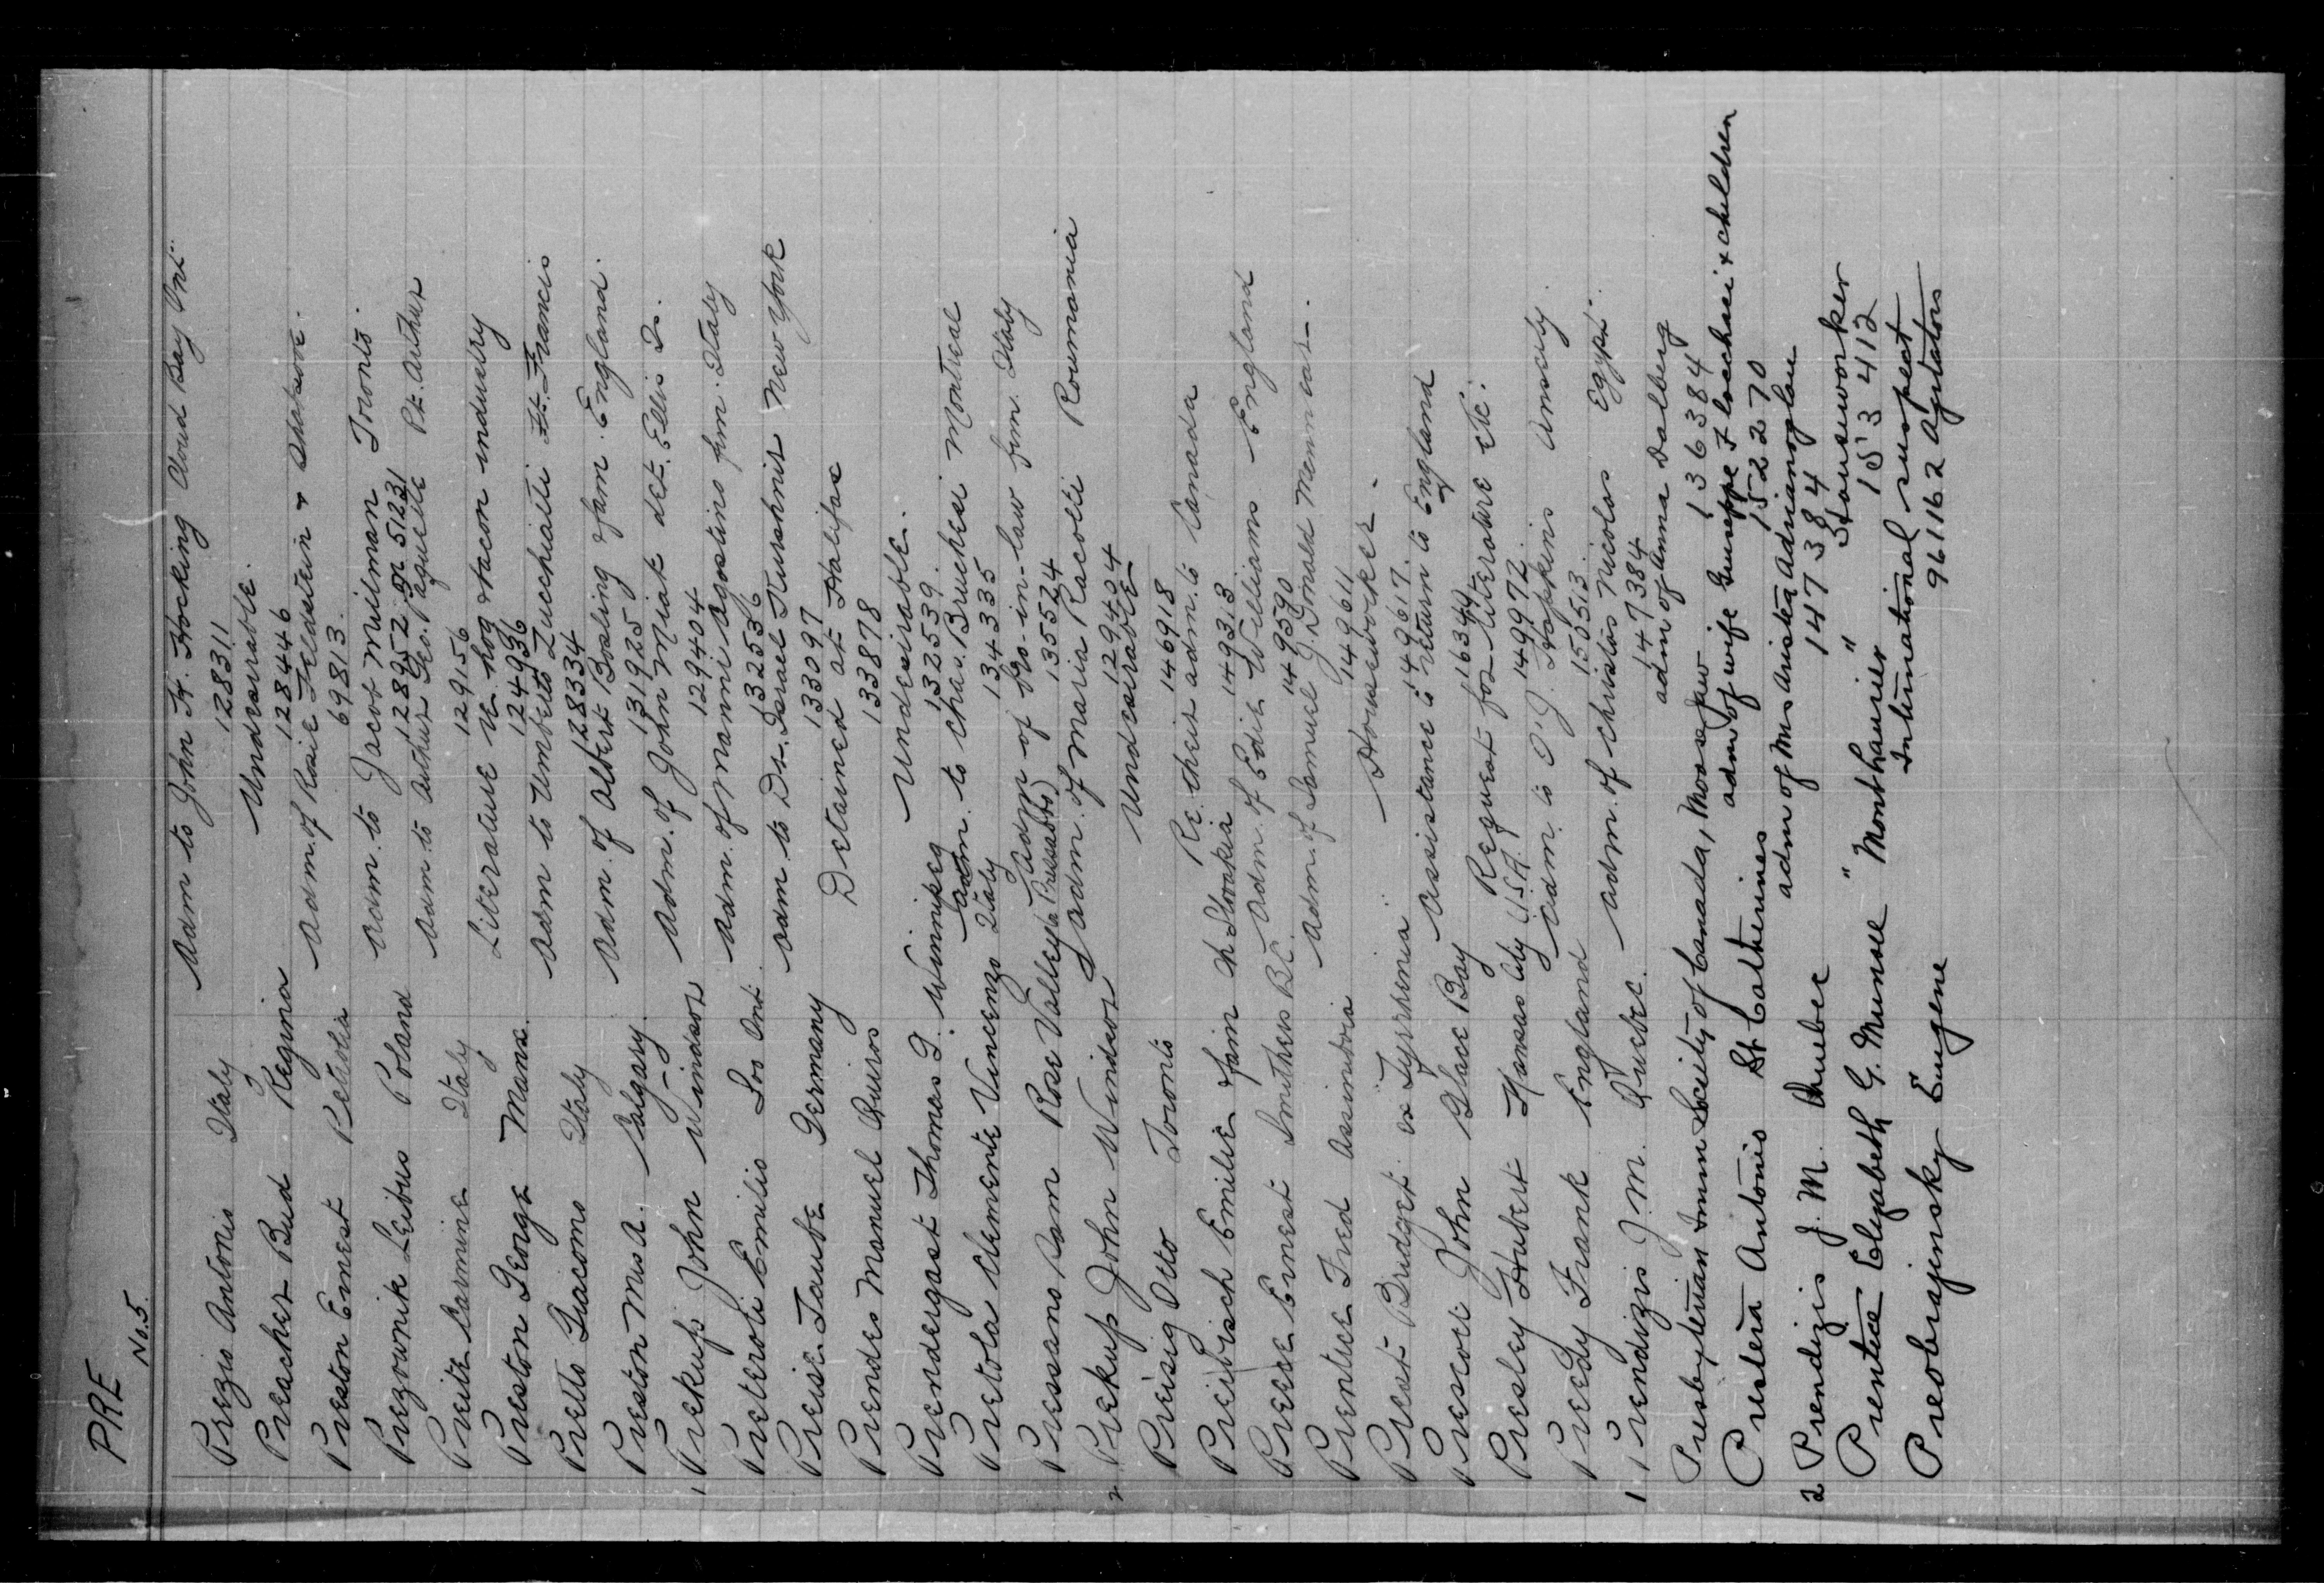 PRE
No. 5.
Prezio Antonio Italy Adm to John H. Hocking Cloud Bay Ont.
128311
Preacher Bud Regina Undesirable.
128446
Preston Ernest Petrolia Adm. of Rosie Feldstein &
69813
Prezownik Leibus Poland Adm. to Jacob Milman Toronto.
128952 or 51231
Preite Carmine Italy Adm to Arthur Geo. Paquette Pt. Arthur
129156
Preston George Mana. Literature re hog & bacon industry
124936
Pretto Giacomo Italy Adm to Umberto Zucchiatti Ft. Francis
128334
Preston Mrs A. Calgary. Adm. of Albert Bosling & fam. England.
131925
1 Prekup John Windsor Adm. of John Miak det. Ellis Is.
129404
Preteroti Emilio Soo Ont. Adm. of Manni Agostino fam. Italy
132536
Preise Taube Germany Adm to Dr. Israel Hurshnit New York
133097
Prendes Manuel Quiros Detained at Halifax
133878
Prendergast Thomas G. Winnipeg Undesirable.
132539.
Pretola Clemente Vincenzo Italy Adm. to Chas. Bruchesi Montreal
134335
Pressano Sam Rose Valley (Pressabto) Adm of bro-in-law fam. Italy
135524
2 Prekup John Windsor Adm. of Maria Racolti Roumania
129404
Preisig Otto Toronto Undesirable
146918
Preibisch Emilie & fam Ch Slovakia Re. their adm. to Canada
149313
Preese Ernest Smithers B.C. Adm. of Edie Williams England
149590
Prentice Fred Assiniboia Adm. of Samuel G. Donald
149611
Prest Bridget ex Tyrrhenia Houseworker.
149617.
Prescott John Glace Bay Assistance to return to England
16344
Presley Hubert Kansas City U.S.A. Request for literature etc.
149972
Preedy Frank England Adm. to O'J. Hopkins
150513
1 Prendizis J. M. Quebec. Adm. of Christos Nicolas Egypt.
147384
Presbyterian Imm Society of Canada, Moose Jaw adm of Anna Dalberg
136384
Prestera Antonio St Catherines adm of wife Guiseppe F lochasi & children
152270
2 Prendizis J. M. Quebec adm of Mrs Anistea Adrianoglou
147384
Prentice Elizabeth G. Munroe " Montlaurier " Houseworker
153412
Preobrajensky Eugene International suspect
961162 Agitators